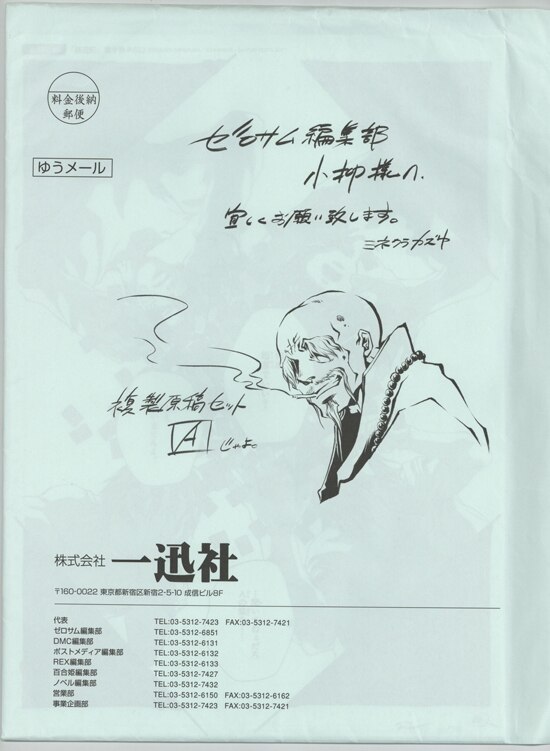 料金後納
郵便
ゆうメール
ゼロサム編集部
小柳様へ
宜しくお願い致します。
ミネクラカズヤ
複製原稿セット
A じゃよ。
株式会社 一迅社
〒160-0022 東京都新宿区新宿2-5-10 成信ビル8F
代表 TEL:03-5312-7423 FAX:03-5312-7421
ゼロサム編集部 TEL:03-5312-6851
DMC編集部 TEL:03-5312-6131
ポストメディア編集部 TEL:03-5312-6132
REX編集部 TEL:03-5312-6133
百合姫編集部 TEL:03-5312-7427
ノベル編集部 TEL:03-5312-7432
営業部 TEL:03-5312-6150 FAX:03-5312-6162
事業企画部 TEL:03-5312-7423 FAX:03-5312-7421